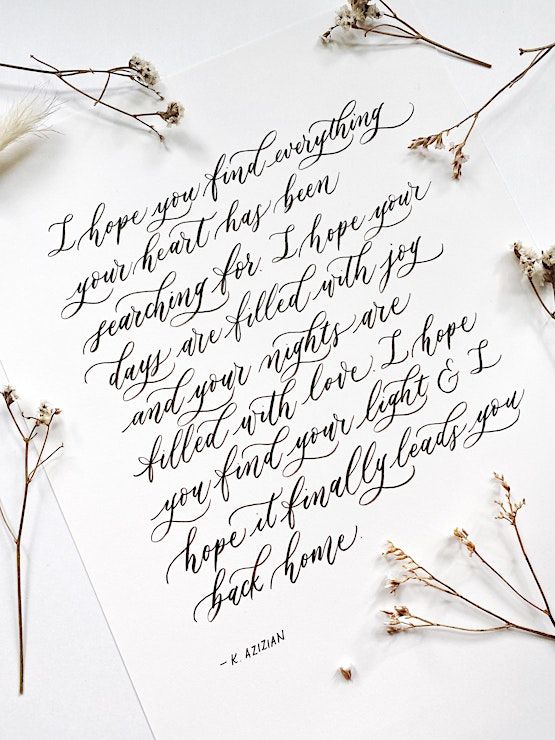 I hope you find everything
your heart has been
searching for. I hope your
days are filled with joy
and your nights are
filled with love. I hope
you find your light & I
hope it finally leads you
back home.
– K. AZIZIAN